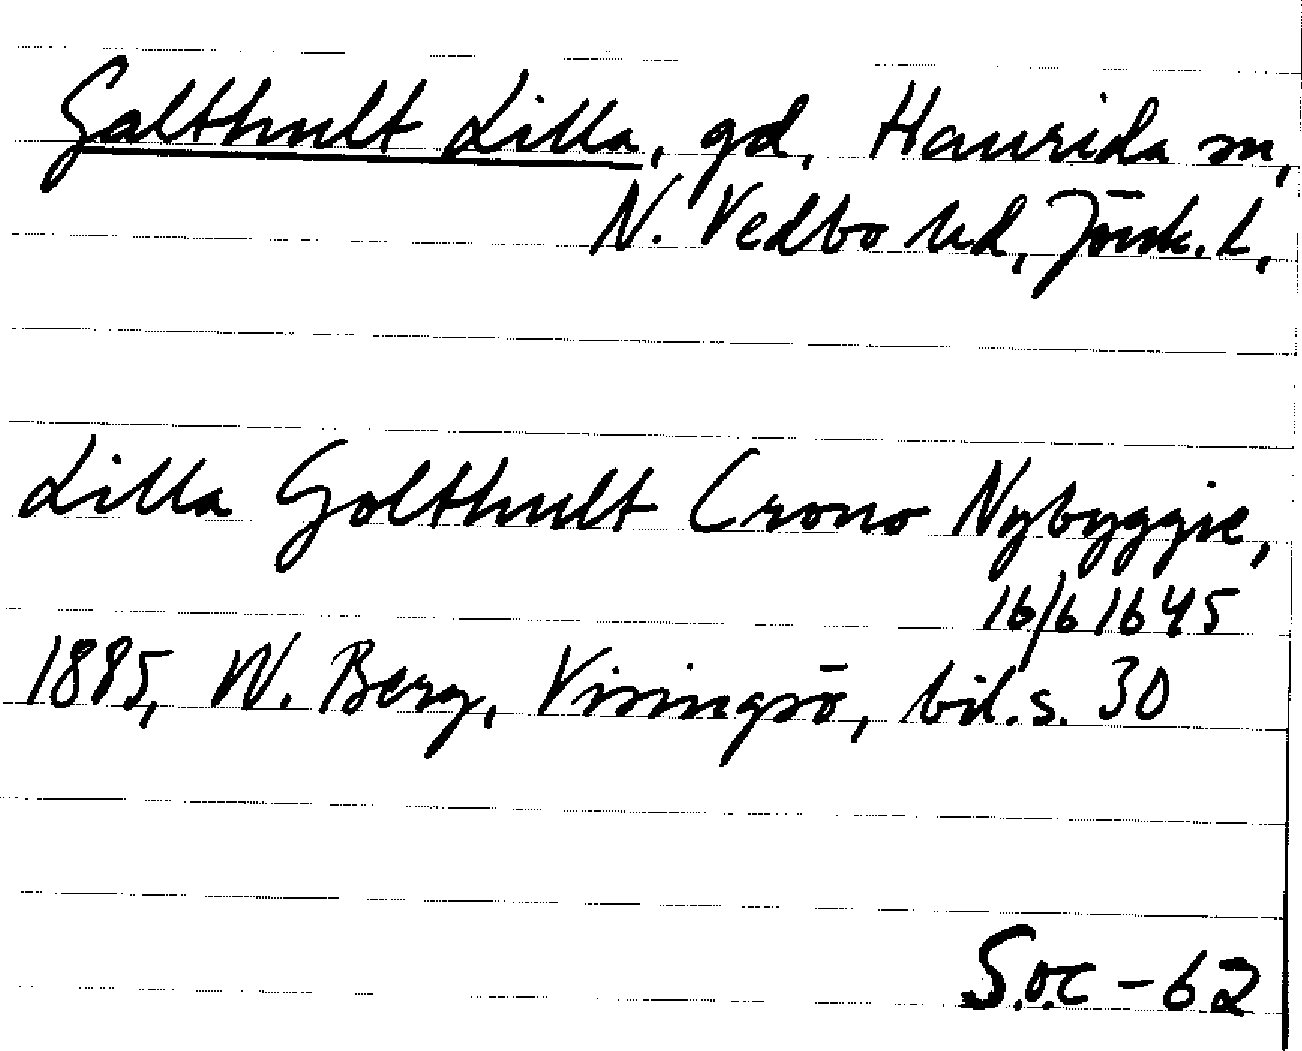 Galthult Lilla, gd, Haurida sn,
N. Vedbo hd, Jönk. L.
Lilla Golthult Crono Nybyggie,
16/6 1645
1885, W. Berg, Visingsö, bil. s. 30
S.o.C - 62